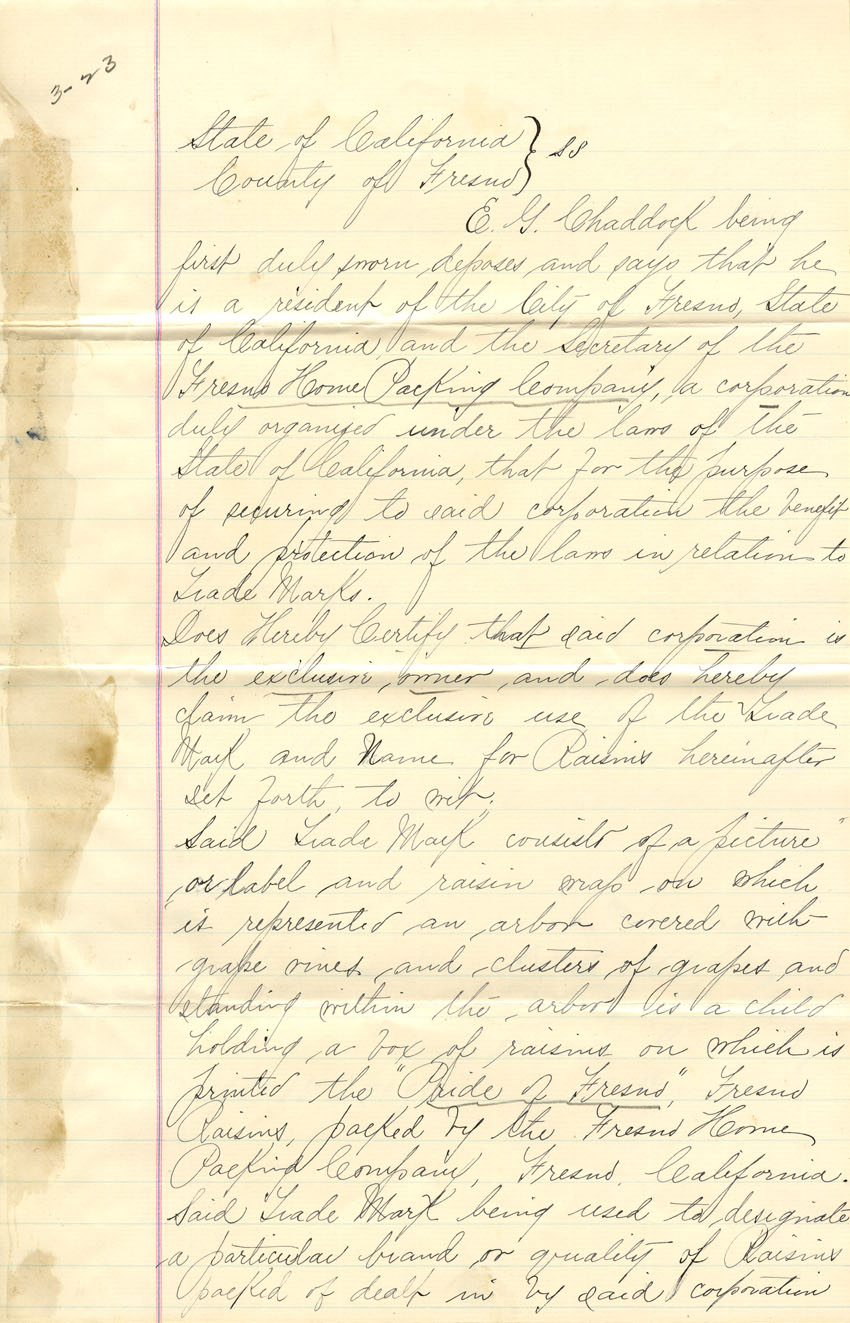 3-23
State of California } SS
County of Fresno }
E. G. Chaddock being
first duly sworn deposes and says that he
is a resident of the City of Fresno, State
of California and the Secretary of the
Fresno Home Packing Company, a corporation
duly organized under the laws of the
State of California, that for the purpose
of securing to said corporation the benefit
and protection of the laws in relation to
Trade Marks.
Does Hereby Certify that said corporation is
the exclusive owner and does hereby
claim the exclusive use of the Trade
Mark and Name for Raisins hereinafter
set forth, to wit;
Said Trade Mark consists of a picture"
or label and raisin wrap on which
"is represented an arbor covered with
grape vines and clusters of grapes and
standing within the arbor is a child
holding a box of raisins on which is
printed the "Pride of Fresno", Fresno
Raisins, packed by the Fresno Home
Packing Company, Fresno, California.
Said Trade Mark being used to designate
a particular brand or quality of Raisins
packed of dealt in by said corporation